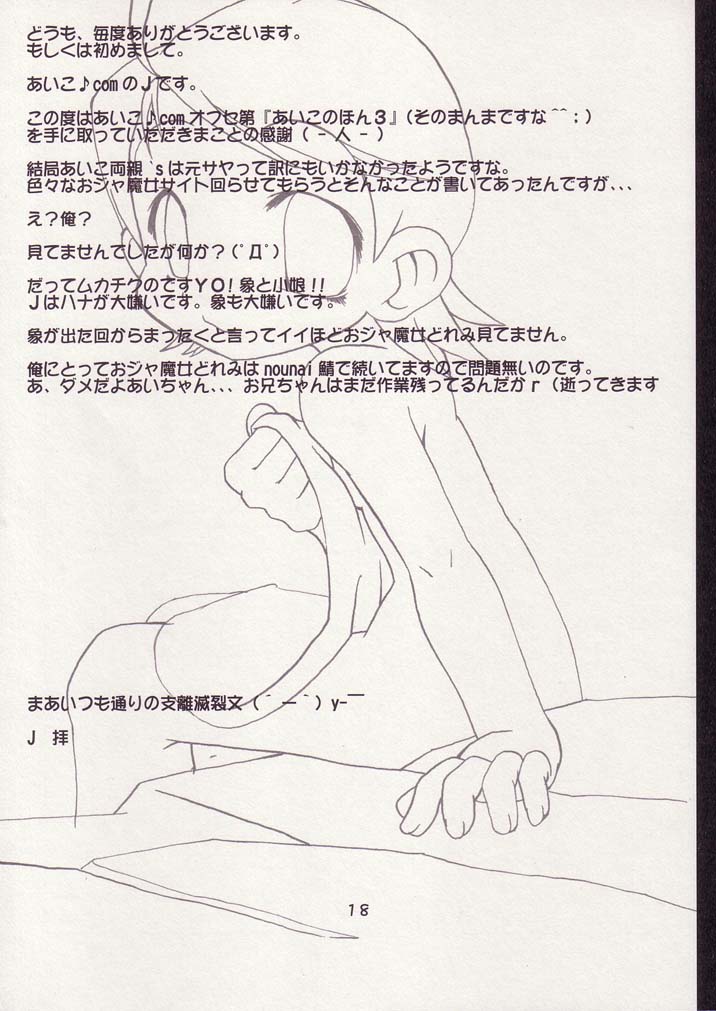 どうも、毎度ありがとうございます。
もしくは初めまして。
あいこ♪comのJです。
この度はあいこ♪comオフセ第『あいこのほん３』(そのまんまですな＾＾；)
を手に取っていただきまことの感謝(－人－)
結局あいこ両親`sは元サヤって訳にもいかなかったようですな。
色々なおジャ魔女サイト回らせてもらうとそんなことが書いてあったんですが､､､
え？俺？
見てませんでしたが何か？(ﾟДﾟ)
だってムカチクのですYO！象と小娘！！
Jはハナが大嫌いです。象も大嫌いです。
象が出た回からまったくと言ってイイほどおジャ魔女どれみ見てません。
俺にとっておジャ魔女どれみはnounai鯖で続いてますので問題無いのです。
あ、ダメだよあいちゃん､､､お兄ちゃんはまだ作業残ってるんだかｒ(逝ってきます
まあいつも通りの支離滅裂文(´ー｀)y-~~
J 拝
18